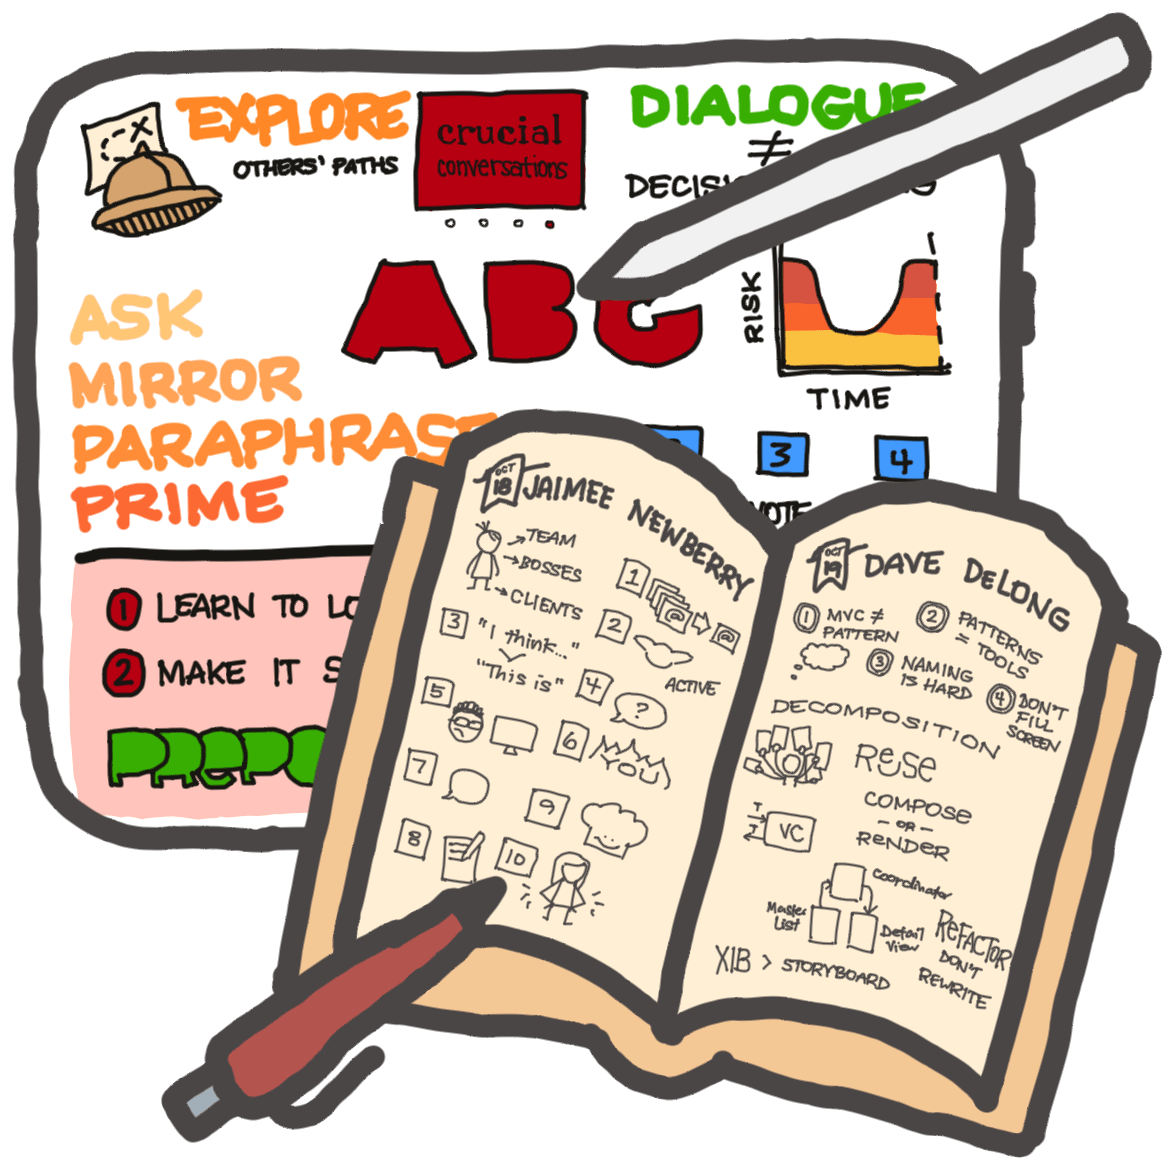 EXPLORE
OTHERS' PATHS
crucial
conversations
DIALOGUE
≠
ABC
RISK
TIME
ASK
MIRROR
PARAPHRASE
PRIME
3
4
1 LEARN TO LO
2 MAKE IT S
OCT
18
JAIMEE NEWBERRY
TEAM
BOSSES
CLIENTS
1
@
@
2
3 "I think..."
"This is"
4
?
ACTIVE
5
6
YOU
7
8
9
10
OCT
19
DAVE DeLONG
1 MVC ≠
PATTERN
2 PATTERNS
= TOOLS
3 NAMING
IS HARD
4 DON'T
FILL
SCREEN
DECOMPOSITION
REUSE
COMPOSE
- OR -
RENDER
VC
Coordinator
Master
List
Detail
View
XIB > STORYBOARD
REFACTOR
DON'T
REWRITE